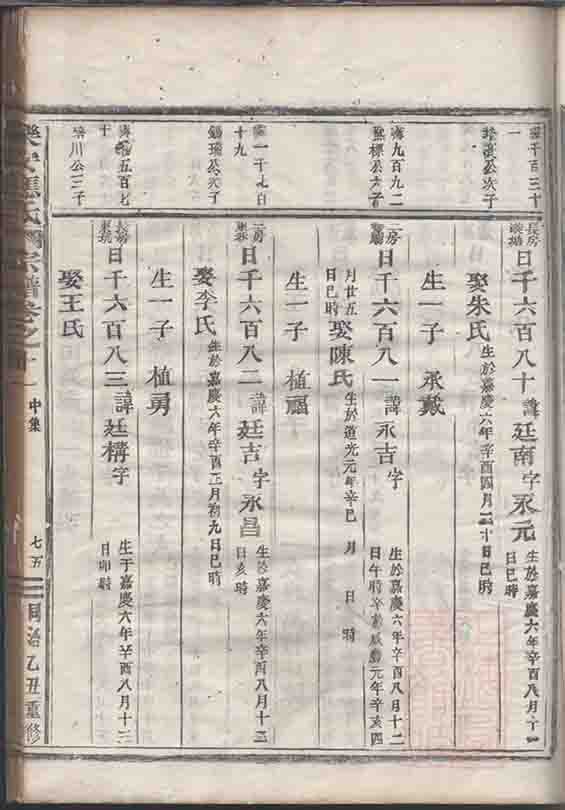 長房
日千六百八十 諱廷南字永元 生於嘉慶六年辛酉八月十一日巳時
公次子
娶朱氏 生於嘉慶六年辛酉四月二十日巳時
生一子 承戴
海九百九二
公六子
二房
日千六百八一 諱永吉字 生於嘉慶六年辛酉八月十二日午時卒於咸豐元年辛亥四月廿五日巳時
娶陳氏 生於道光元年辛巳 月 日 時
生一子 植福
一千七百十九
錫瑞公次子
二房
日千六百八二 諱廷吉字永昌 生於嘉慶六年辛酉八月十三日亥時
娶李氏 生於嘉慶六年辛酉正月初九日巳時
生一子 植勇
五百七十
川公三子
長房
日千六百八三 諱廷構字 生于嘉慶六年辛酉八月十三日卯時
娶王氏
宗譜卷之十一 中集 七五 同治乙丑重修